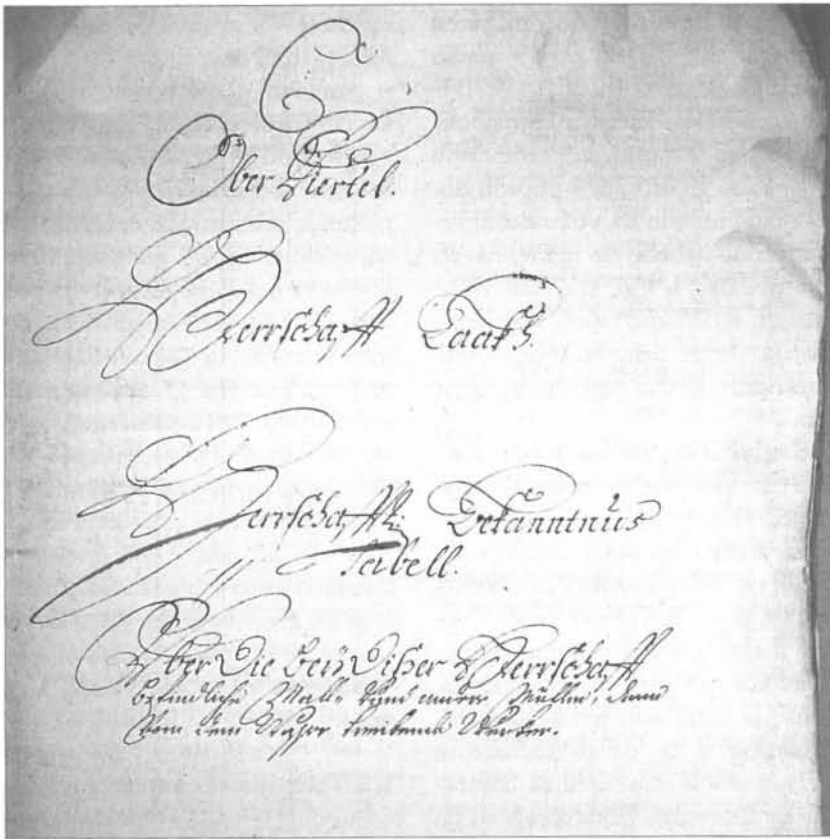 Ober Viertel.
Herrschafft Laaß.
Herrschafftl: Bekanntnus
Tabell.
Über die beÿ dißer Herrschafft
befindliche Mall- Vnnd andere Mühlen, dann
Von dem Waßer treibende Wercker.